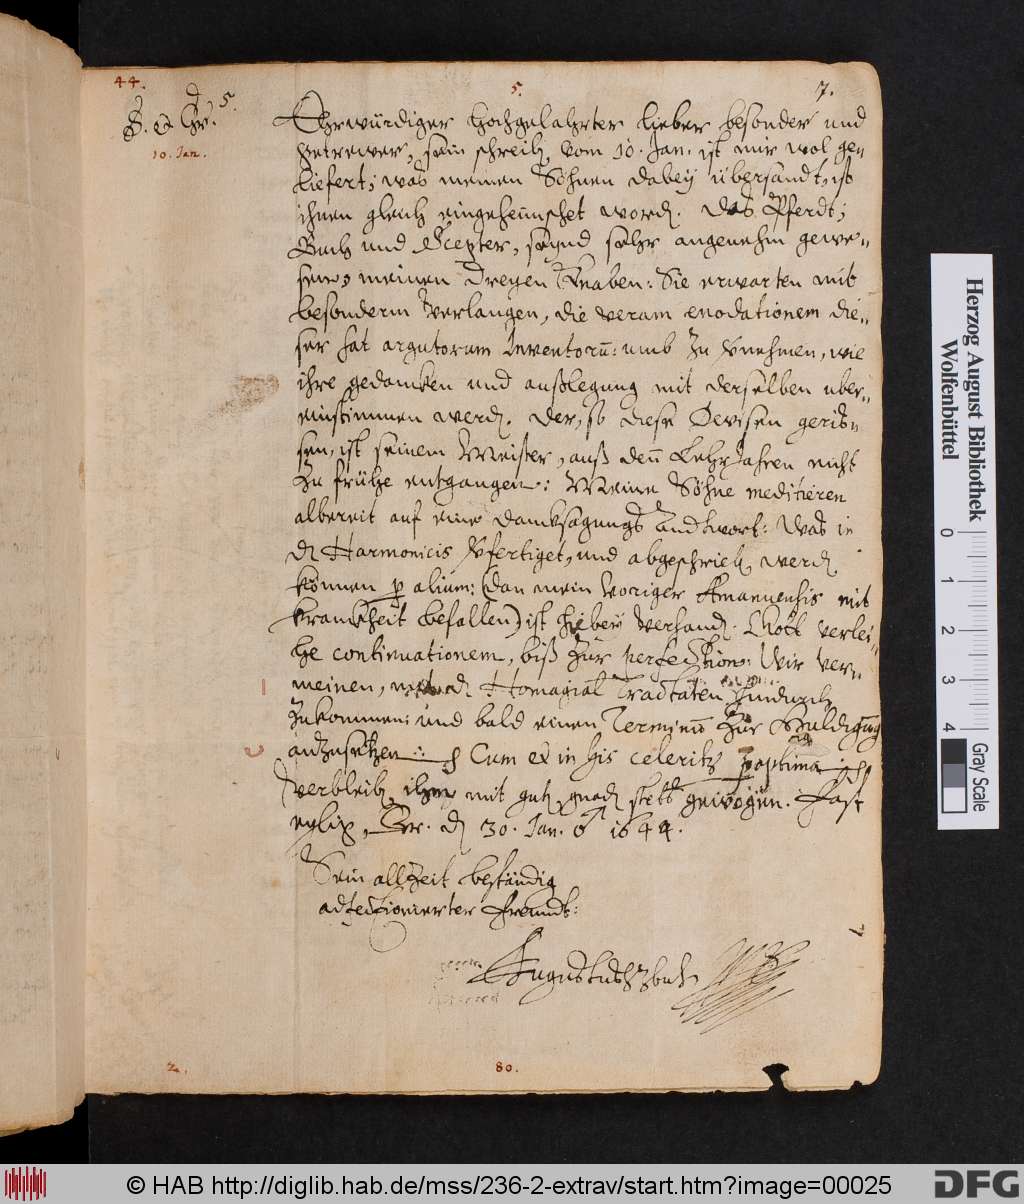 44.
5.
7.
5.
10. Jan.
Ehrwürdiger Hochgelahrter lieber besonder und
getrewer, sein schreib. vom 10. Jan. ist mir wol ge-
liefert; was meinen Söhnen dabey übersandt, ist
ihnen gleich word. das Pferdt;
Buch und Scepter, seynd sehr angenehm gewe-
sen, meinen dreyen Knaben: Sie erwarten mit
besonderm verlangen, die veram enodationem die-
ser argutorum Inventorũ: umb zu vnehmen, wie
ihre gedancken und außlegung mit derselben über-
einstimmen werd. der, so diese Devisen geris-
sen, ist seinem Meister, auß den Lehr Jahren nicht
zu frühe entgangen: Meine Söhne meditieren
albereit auf eine dancksagungs Andtwort: Was in
d. Harmonicis vfertiget, und abgeschrieb. werd.
können p alium: (dan mein voriger Amanuensis mit
kranckheit befallen) ist hiebey verhand. Gott verlei-
he continuationem, biß zur perfection: Wir ver-
meinen, Homagial Tractaten
zukommen: und bald einen Terminũ zur Huldigũg
antzusetzen Cum ex in his
verbleib. ihm mit gut. gnad. stets gewogen. Fast
eylig, d. 30. Jan. 1644.
Sein allZeit beständig
affectionierter freundt:
Augustus HzBuL
2.
80.
Herzog August Bibliothek
Wolfenbüttel
0 1 2 3 4
Gray Scale
© HAB http://diglib.hab.de/mss/236-2-extrav/start.htm?image=00025
DFG